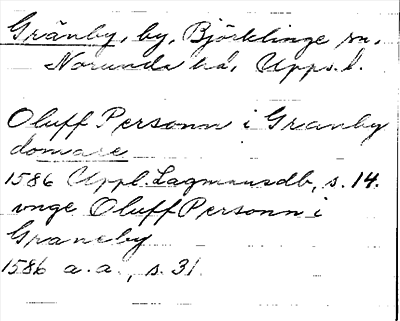 Gränby, by, Björklinge sn,
Norunda hd, Upps. l.
Oluff Personn i Granby
domare
1586 Uppl. Lagmansdb, s. 14.
unge Oluff Personn i
Graneby
1586 a. a., s. 31.